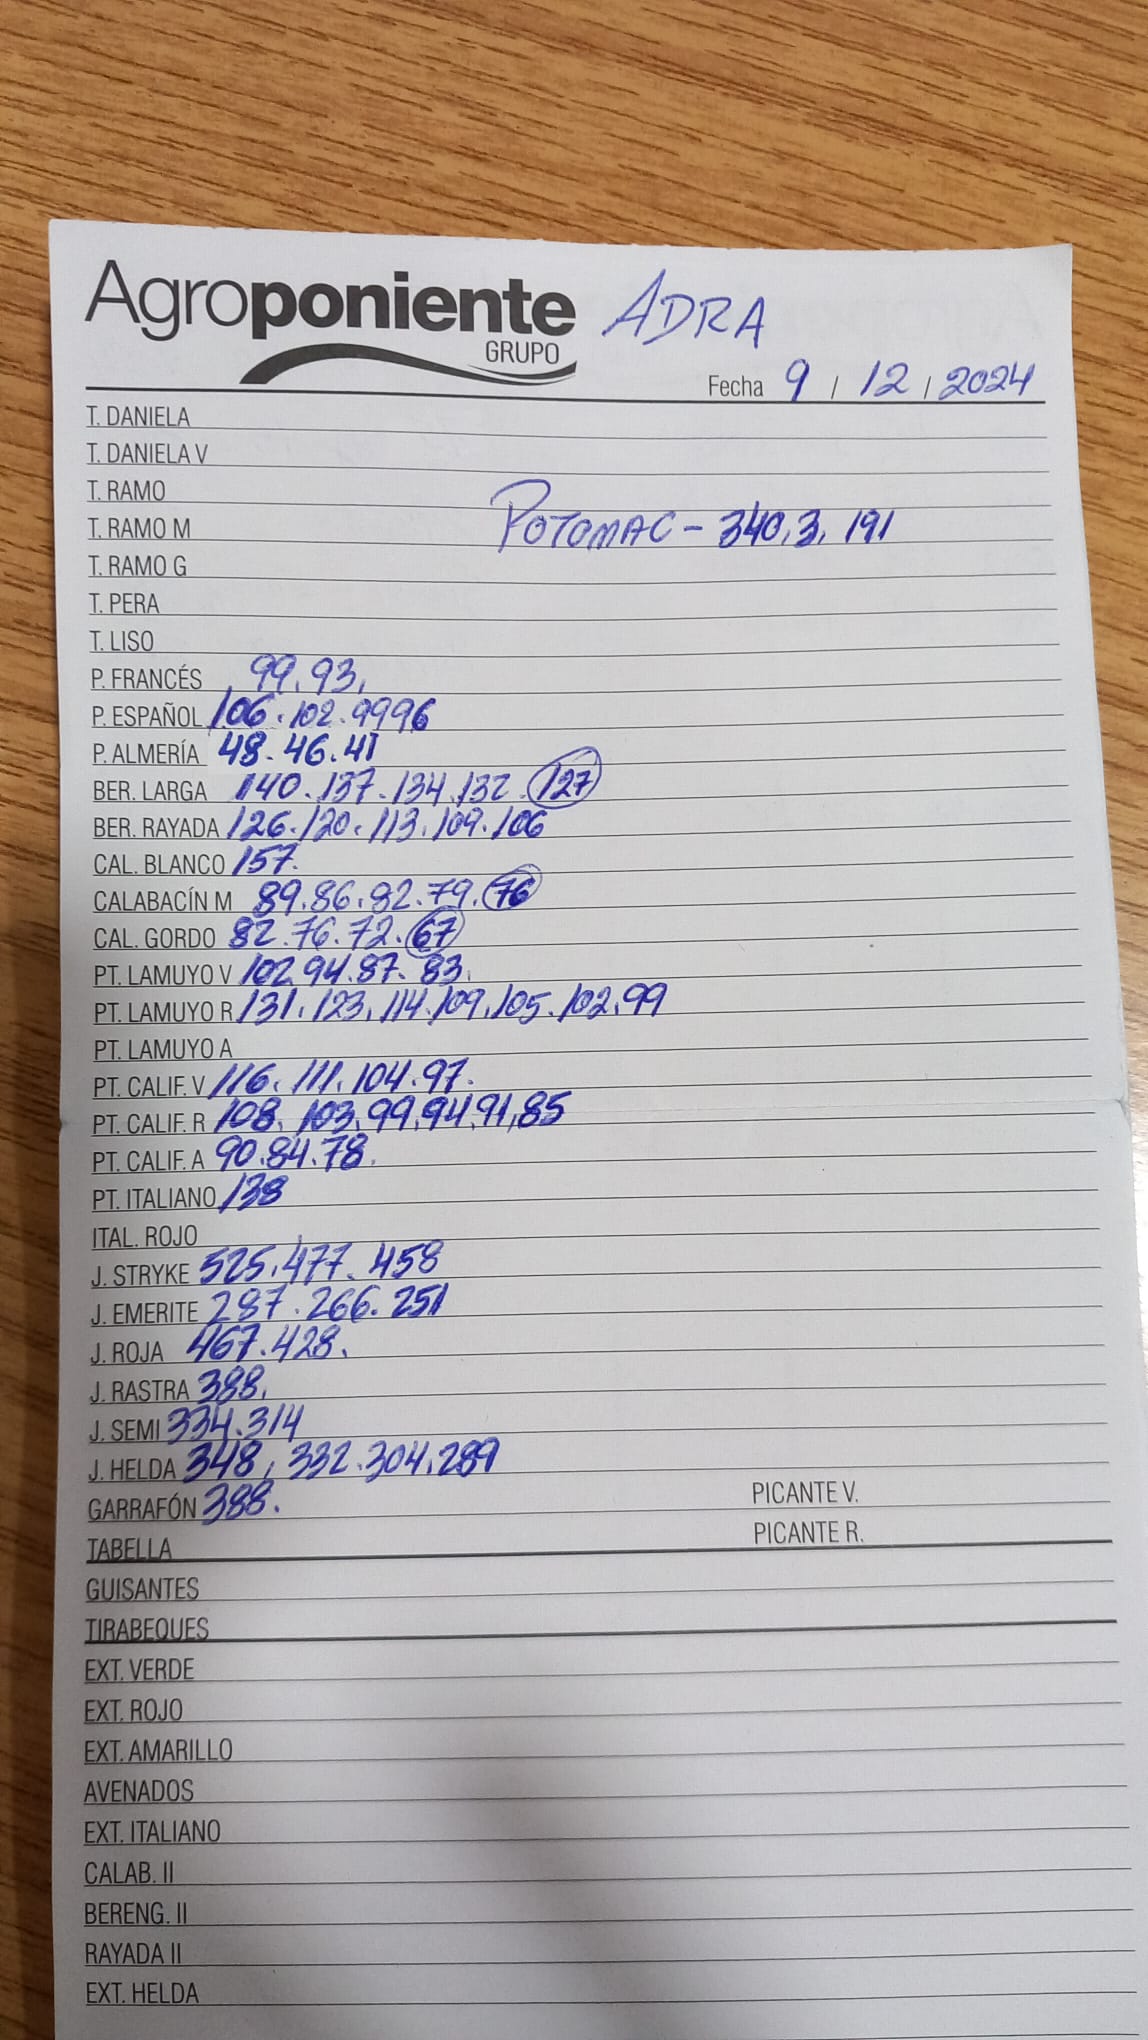 Agroponiente ADRA
GRUPO
Fecha 9 / 12 / 2024
T. DANIELA
T. DANIELA V
T. RAMO
T. RAMO M POTOMAC - 340,3, 191
T. RAMO G
T. PERA
T. LISO
P. FRANCÉS 99.93,
P. ESPAÑOL 106.102.9996
P. ALMERÍA 48.46.41
BER. LARGA 140.137.134.132.127
BER. RAYADA 126.120.113.109.106
CAL. BLANCO 157.
CALABACÍN M 89.86.82.79.76
CAL. GORDO 82.76.72.67
PT. LAMUYO V 102.94.87.83.
PT. LAMUYO R 131.123.114.109.105.102.99
PT. LAMUYO A
PT. CALIF. V 116.111.104.97.
PT. CALIF. R 108.103.99.94.91,85
PT. CALIF. A 90.84.78.
PT. ITALIANO 138
ITAL. ROJO
J. STRYKE 525.477.458
J. EMERITE 287.266.251
J. ROJA 467.428.
J. RASTRA 388,
J. SEMI 334.314
J. HELDA 348, 332.304.289
GARRAFÓN 388. PICANTE V.
TABELLA PICANTE R.
GUISANTES
TIRABEQUES
EXT. VERDE
EXT. ROJO
EXT. AMARILLO
AVENADOS
EXT. ITALIANO
CALAB. II
BERENG. II
RAYADA II
EXT. HELDA